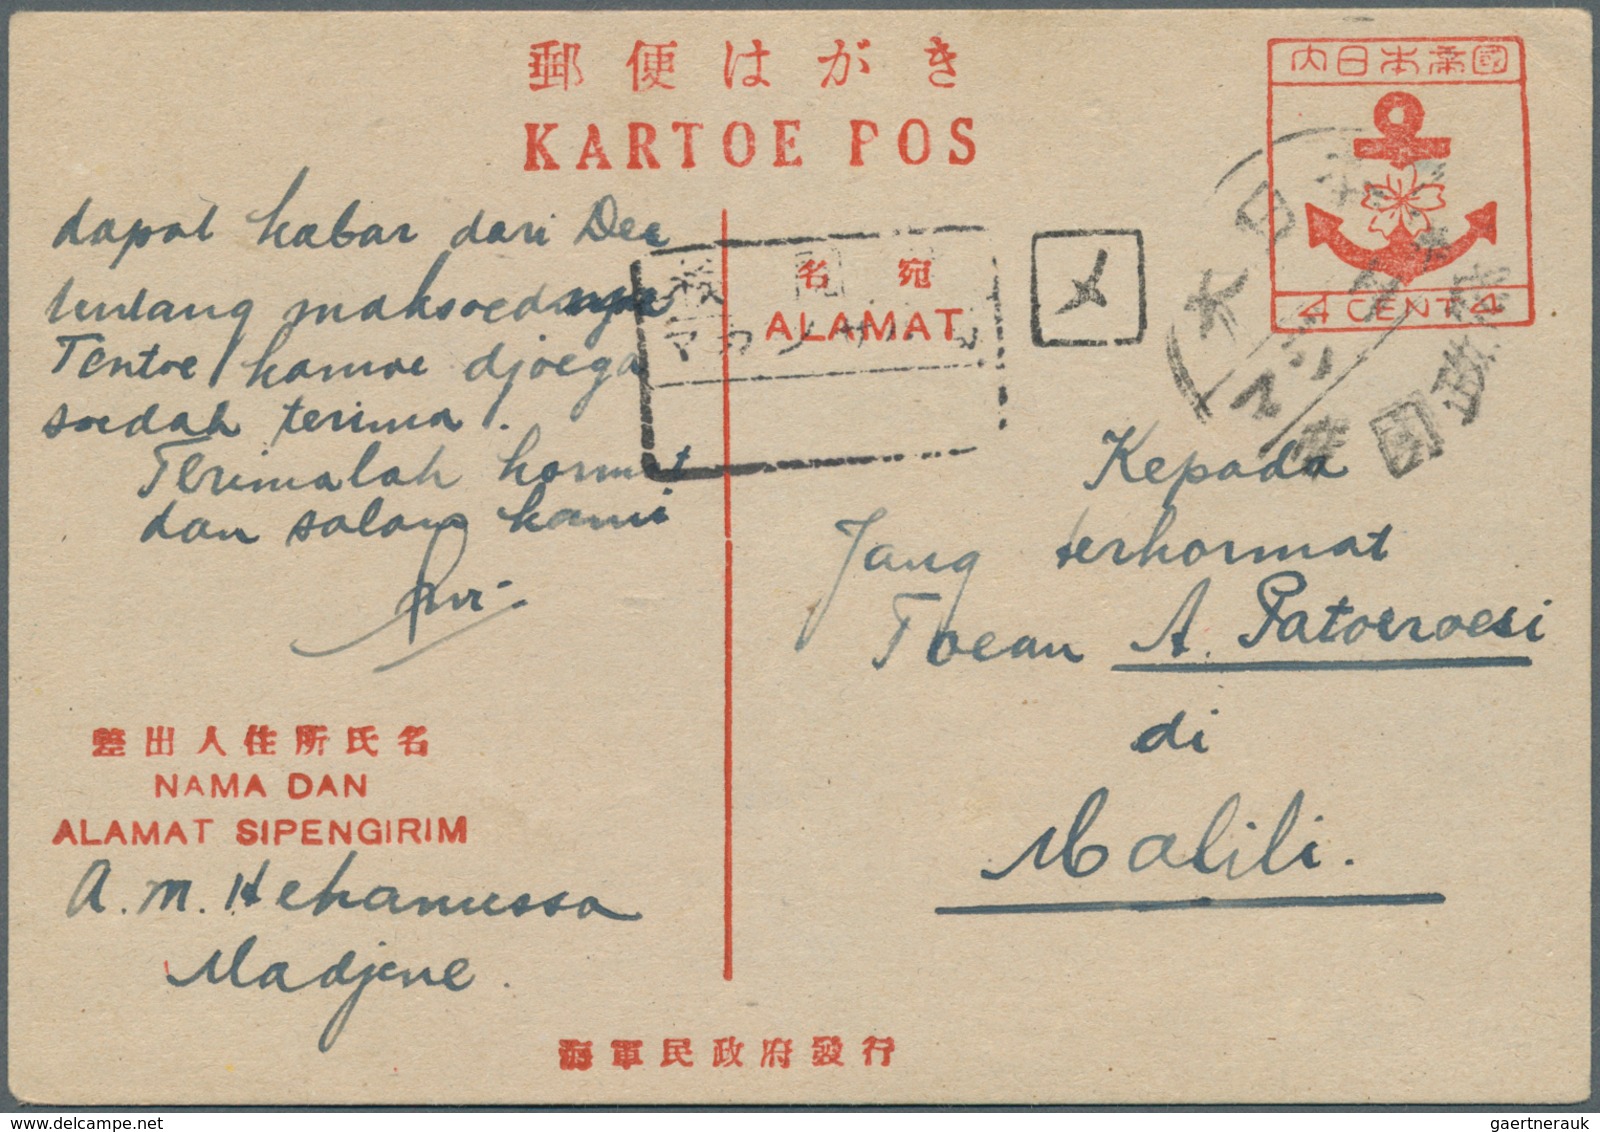 郵便はがき
KARTOE POS
内日本帝國
4 CENT 4
dapat kabar dari Dee
tentang maksoednya
Tentoe kamoe djoega
soedah terima.
Terimalah hormat
dan salam kami
名宛
ALAMAT
検閲
マカッサル
メ
大日本
Kepada
Jang terhormat
Toean A. Patoeroesi
di
Malili.
差出人住所氏名
NAMA DAN
ALAMAT SIPENGIRIM
A. M. Hehanussa
Madjene.
海軍民政府發行
gaertnerauk